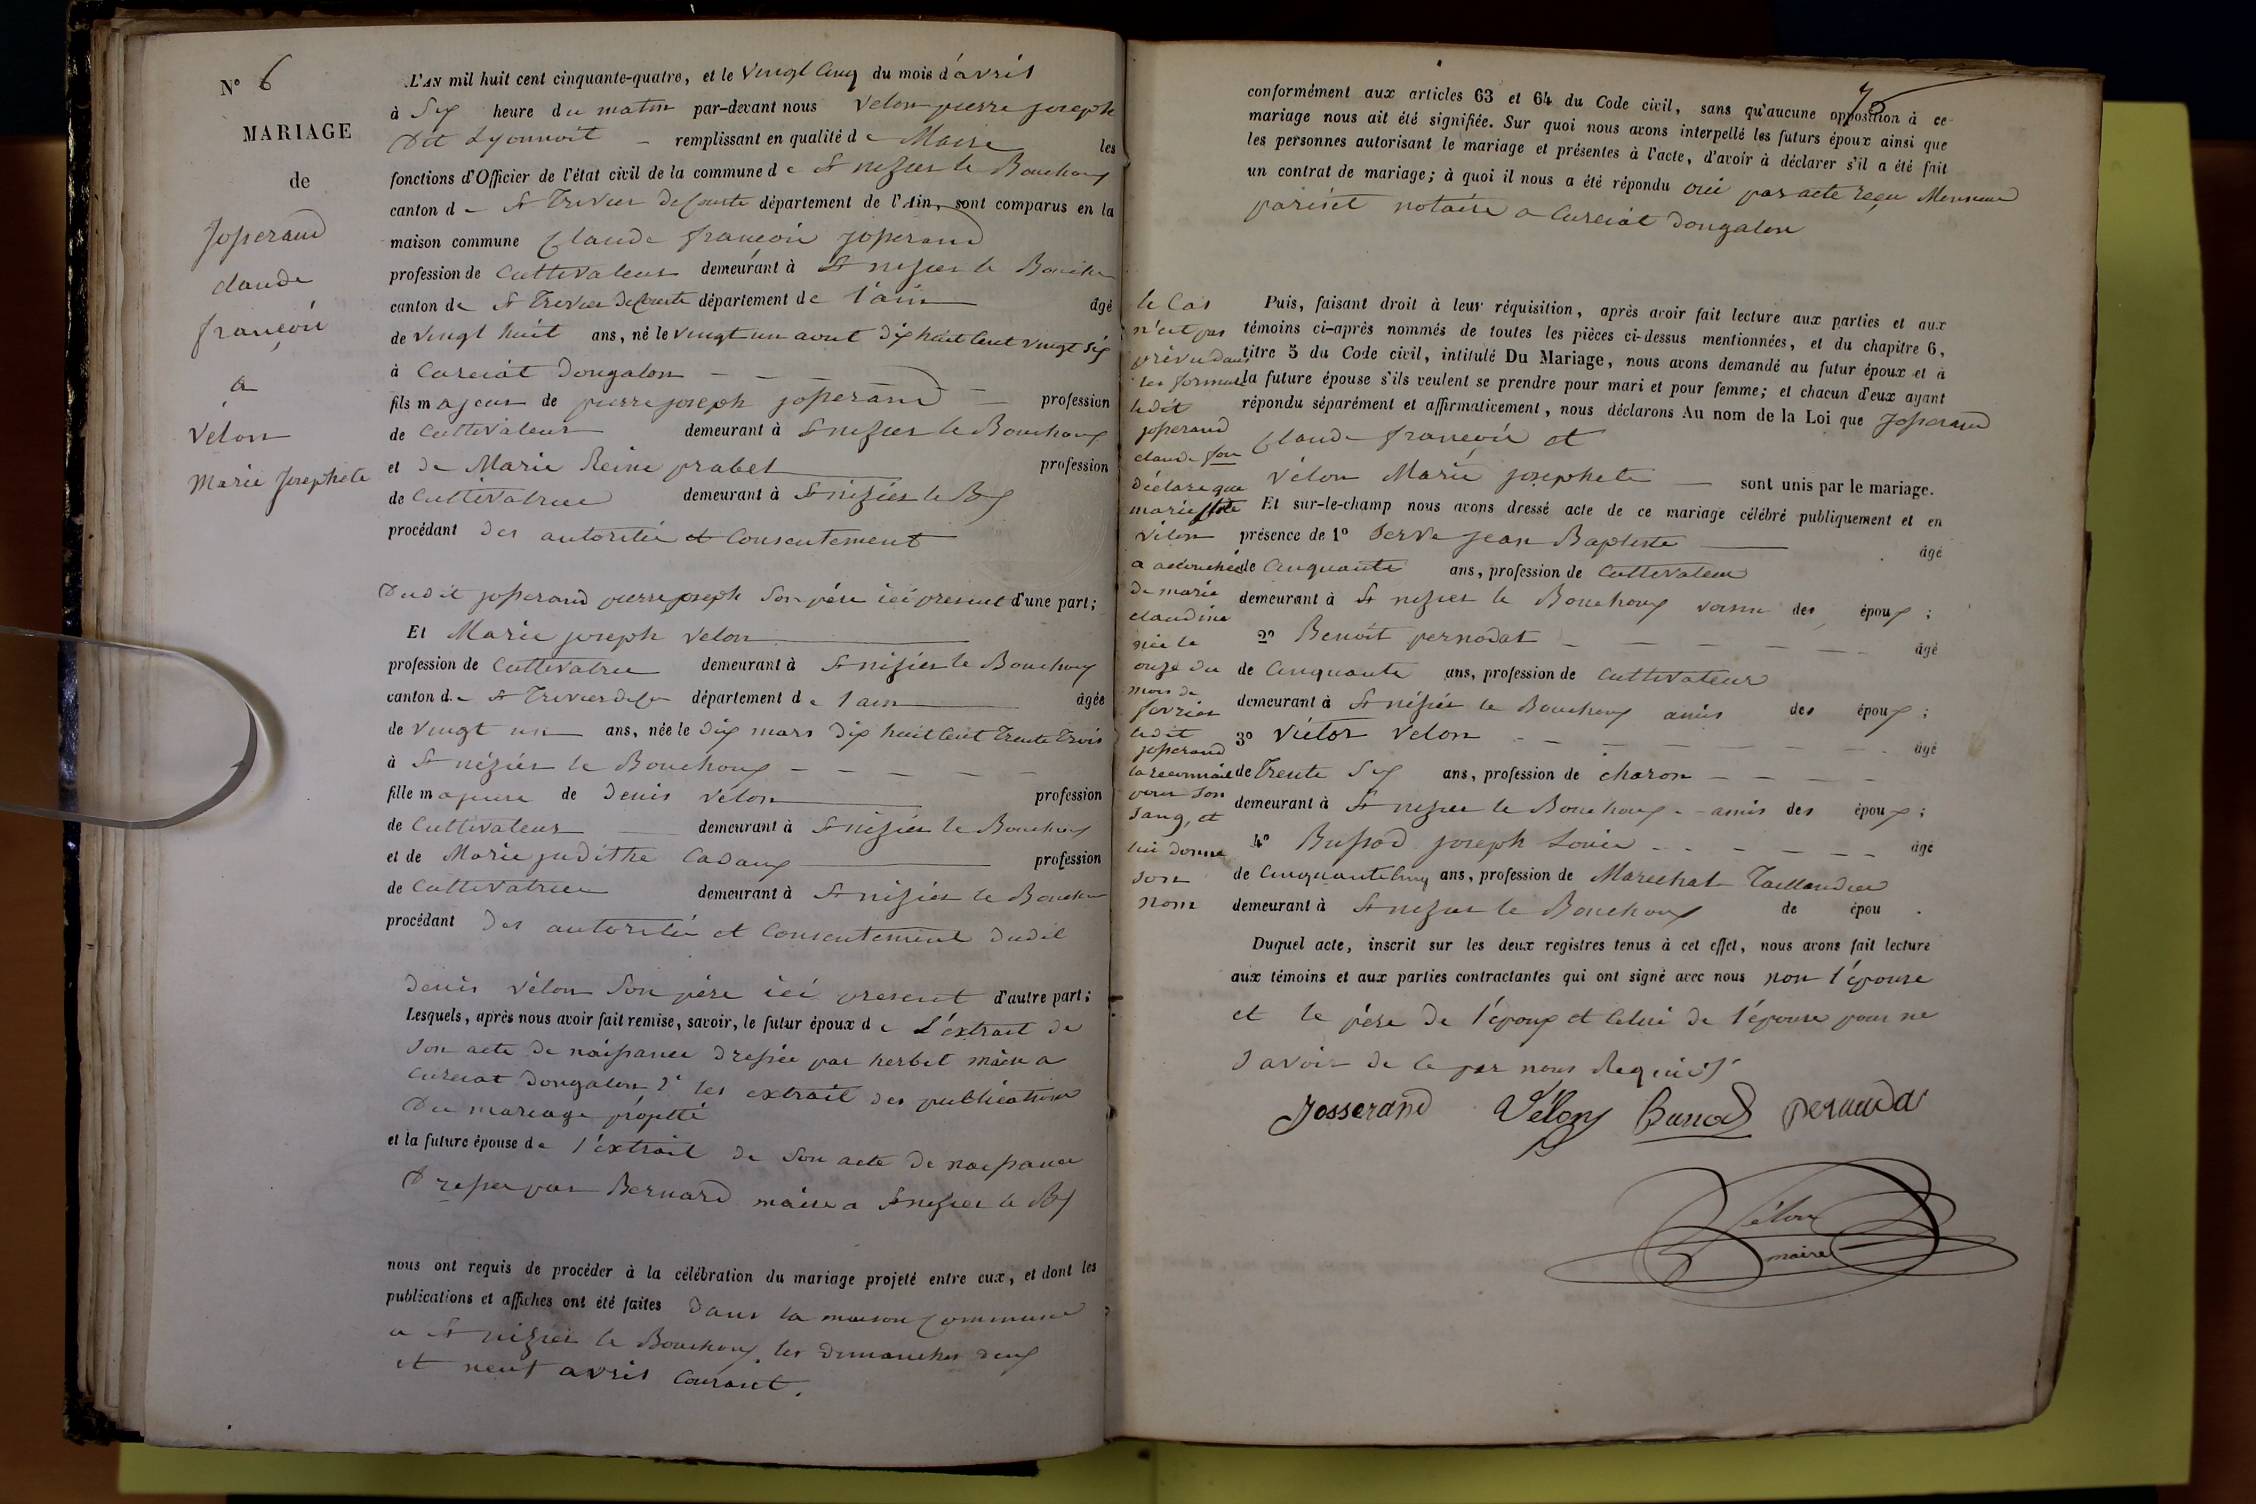 N° 6
MARIAGE
de
Josserand
claude
françois
a
vélon
marie Josephete
L'AN mil huit cent cinquante-quatre, et le vingt cinq du mois d'avril
à six heure du matin par-devant nous velon pierre joseph
dit Lyonnoit remplissant en qualité de Maire les
fonctions d'Officier de l'état civil de la commune de St nizier le Bouchoux
canton de St Trivier de Courte département de l'Ain, sont comparus en la
maison commune Claude françois josserand
profession de cultivateur demeurant à St nizier le Bouchou
canton de St Trivier de Courte département de l'ain âgé
de vingt huit ans, né le vingt un aout dix huit cent vingt six
à Curciat dongalon
fils majeur de pierre joseph josserand profession
de cultivateur demeurant à St nizier le Bouchoux
et de Marie Reine prabel profession
de cultivatrice demeurant à St nizier le Bx
procédant des autorité et consentement
dudit josserand pierre joseph son père ici present d'une part;
Et Marie joseph velon
profession de cultivatrice demeurant à St nizier le Bouchoux
canton de St Trivier de Co département de l'ain âgée
de vingt un ans, née le dix mars dix huit cent trente trois
à St nizier le Bouchoux
fille majeure de Denis vélon profession
de cultivateur demeurant à St nizier le Bouchoux
et de Marie judithe Cadoux profession
de cultivatrice demeurant à St nizier le Bouchou
procédant des autorité et consentement dudit
denis vélon son père ici present d'autre part;
Lesquels, après nous avoir fait remise, savoir, le futur époux de L'éxtrait de
son acte de naissance dressée par herbet maire a
curciat dongalon 2° les extrait des publication
du mariage projetté
et la future épouse de l'éxtrait de son acte de naissance
dressée par Bernard maire a St nizier le Bx
nous ont requis de procéder à la célébration du mariage projeté entre eux, et dont les
publications et affiches ont été faites dans la maison commune
a St nizier le Bouchoux les dimanches deux
et neuf avril courant.
75
conformément aux articles 63 et 64 du Code civil, sans qu'aucune opposition à ce
mariage nous ait été signifiée. Sur quoi nous avons interpellé les futurs époux ainsi que
les personnes autorisant le mariage et présentes à l'acte, d'avoir à déclarer s'il a été fait
un contrat de mariage; à quoi il nous a été répondu oui par acte reçu Monsieur
notaire a Curciat dongalon
le cas
n'est pas
prévu dans
les formule
ledit
josserand
claude fois
déclare que
marie jphte
vélon
a accouchée
de marie
claudine
née le
onze du
mois de
fevrier
ledit
josserand
la reconnait
pour son
sang, et
lui donne
son
nom
Puis, faisant droit à leur réquisition, après avoir fait lecture aux parties et aux
témoins ci-après nommés de toutes les pièces ci-dessus mentionnées, et du chapitre 6,
titre 5 du Code civil, intitulé Du Mariage, nous avons demandé au futur époux et à
la future épouse s'ils veulent se prendre pour mari et pour femme; et chacun d'eux ayant
répondu séparément et affirmativement, nous déclarons Au nom de la Loi que Josserand
Claude françois et
vélon Marie josephete sont unis par le mariage.
Et sur-le-champ nous avons dressé acte de ce mariage célébré publiquement et en
présence de 1° Serve jean Baptiste âgé
de cinquante ans, profession de cultivateur
demeurant à St nizier le Bouchoux voisin des époux;
2° Benoit pernodat âgé
de cinquante ans, profession de cultivateur
demeurant à St nizier le Bouchoux amis des époux;
3° victor velon âgé
de trente six ans, profession de charon
demeurant à St nizier le Bouchoux amis des époux;
4° Bussod joseph Louis âgé
de cinquante cinq ans, profession de Marechal Taillandier
demeurant à St nizier le Bouchoux de épou .
Duquel acte, inscrit sur les deux registres tenus à cet effet, nous avons fait lecture
aux témoins et aux parties contractantes qui ont signé avec nous non l'épouse
et le père de l'époux et celui de l'épouse pour ne
savoir de ce par nous Requis
Josserand Vélon
Vélon
maire